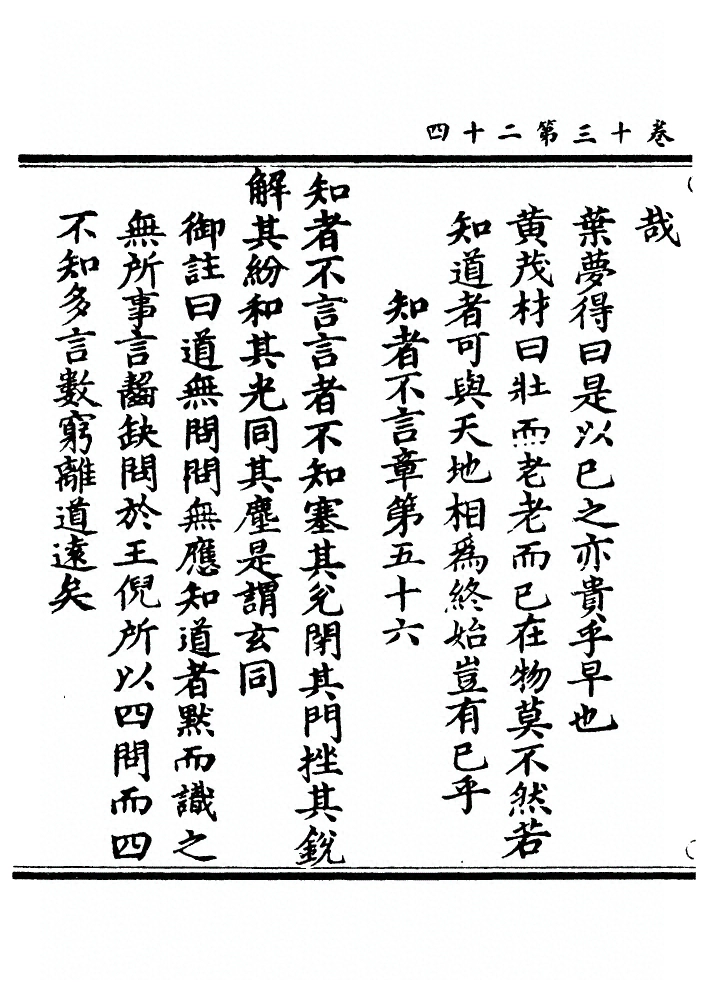 卷十三第二十四
哉
葉夢得曰是以已之亦貴乎早也
黄茂材曰壯而老老而已在物莫不然若
知道者可與天地相爲終始豈有已乎
知者不言章第五十六
知者不言言者不知塞其兌閉其門挫其銳
解其紛和其光同其塵是謂玄同
御註曰道無問問無應知道者默而識之
無所事言齧缺問於王倪所以四問而四
不知多言數窮離道遠矣